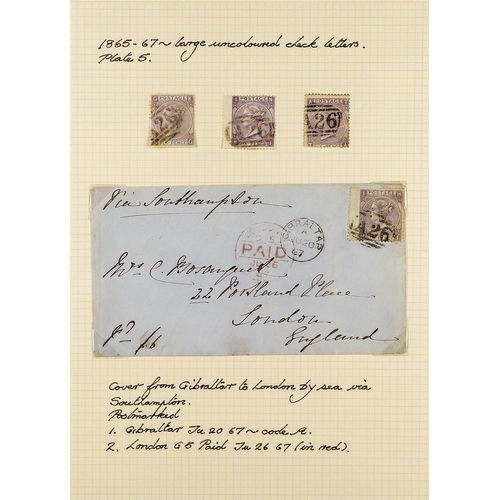 1865-67 ~ large uncoloured check letters.
Plate 5.
POSTAGE
POSTAGE
POSTAGE
A26
A26
Via Southampton
POSTAGE
A26
GIBRALTAR
A
JU 20
67
PAID
JU 26
Mrs C. Bosanquet
22 Portland Place
London
England
Cover from Gibraltar to London by sea via
Southampton.
Postmarked
1. Gibraltar Ju 20 67 ~ code A.
2. London G5 Paid Ju 26 67 (in red).